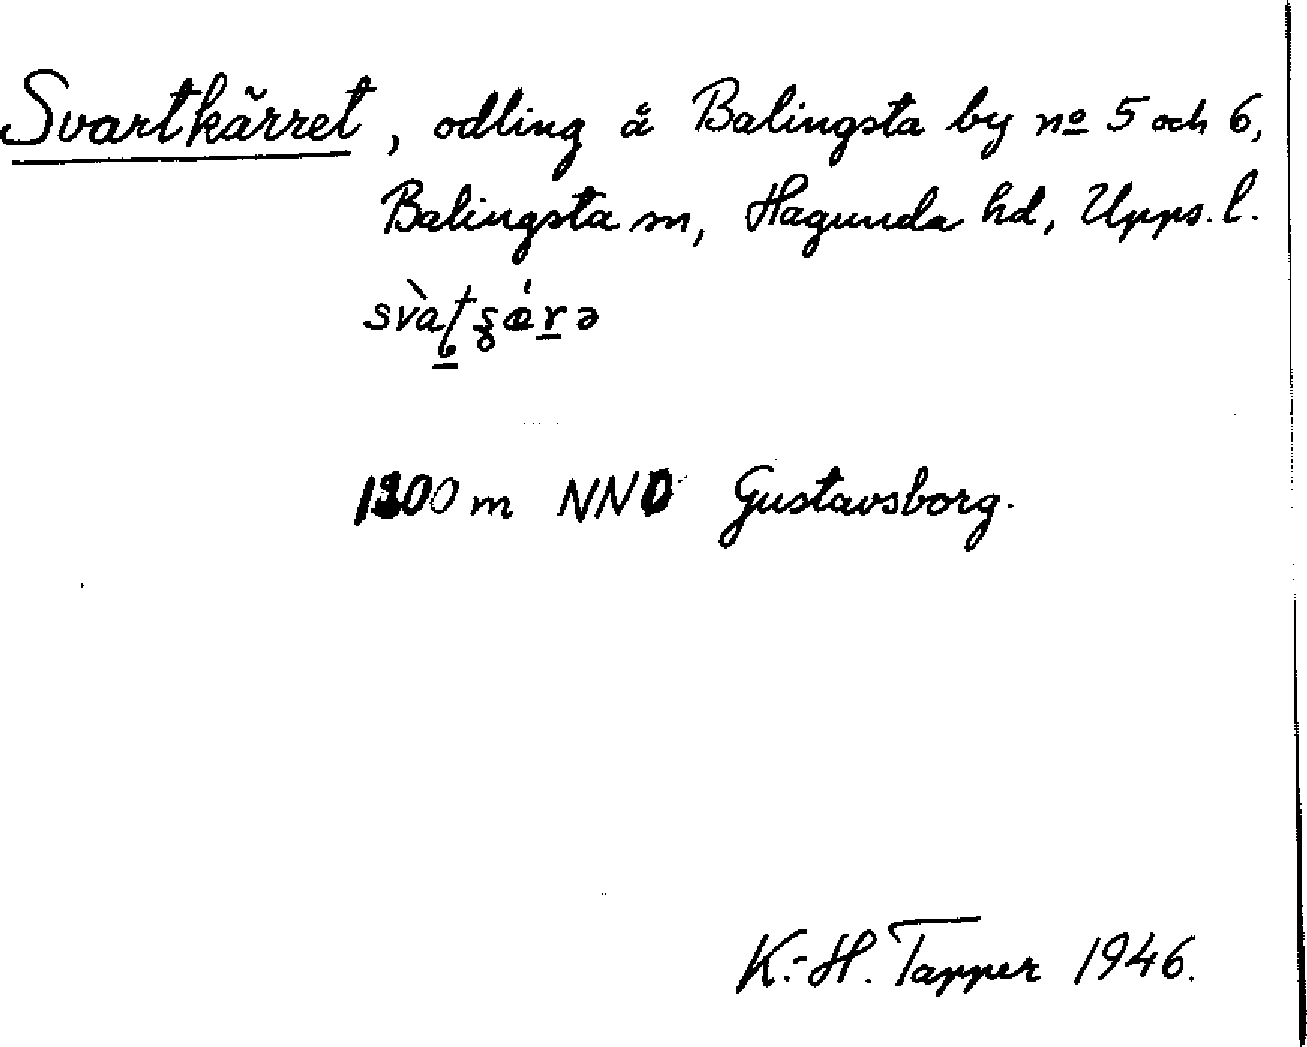 Svartkärret, odling å Balingsta by nº 5 och 6,
Balingsta sn, Hagunda hd, Upps. l.
1300 m NNO Gustavsborg.
K.-H. Tapper 1946.